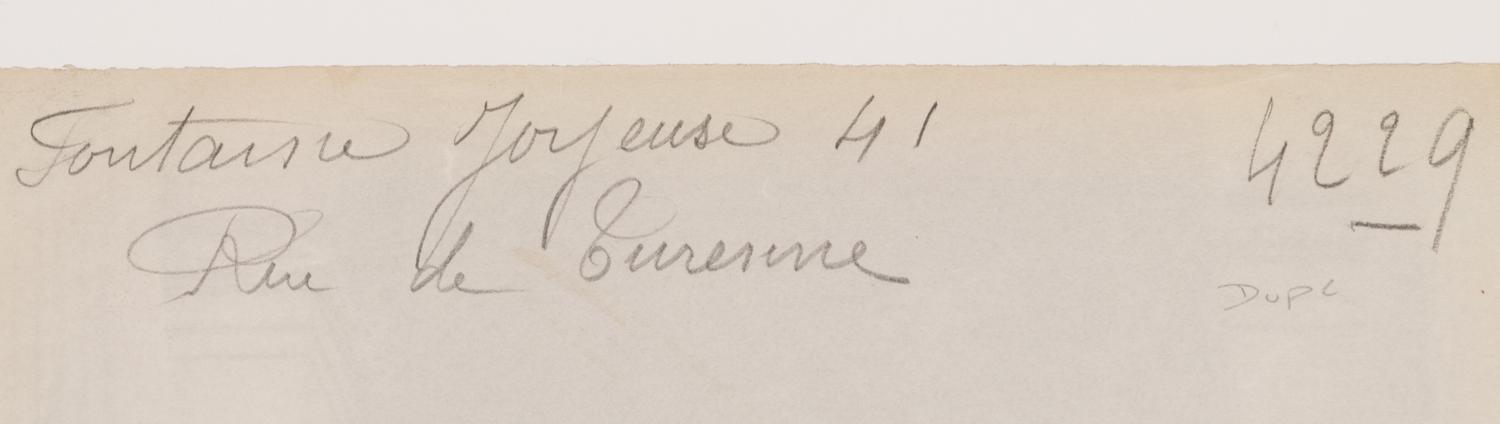 Fontaine Joyeuse 41 4229
Rue de Turenne
DUPL